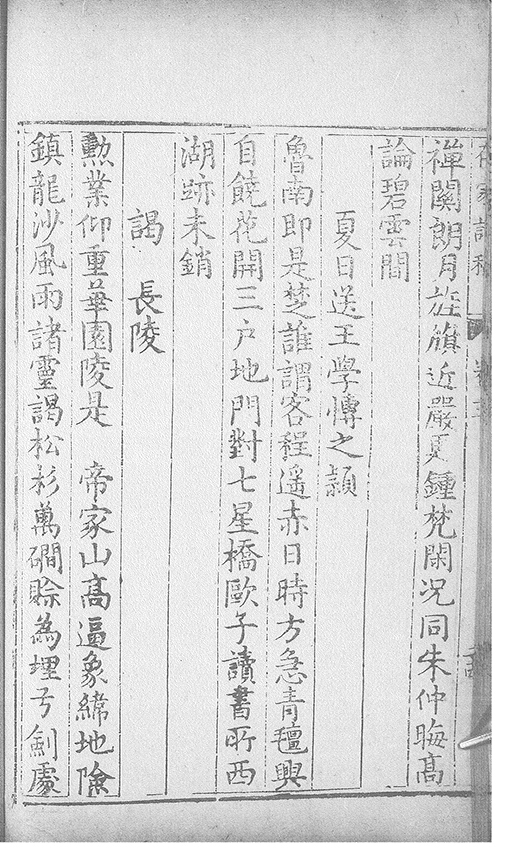 禪關朗月旌旗近嚴更鍾梵閑况同朱仲晦高
論碧雲間
夏日送王學愽之頴
魯南即是楚誰謂客程遥赤日時方急青氊興
自饒花開三户地門對七星橋歐子讀書所西
湖跡未銷
謁　長陵
勲業仰重華園陵是　帝家山高逼象緯地險
鎮龍沙風雨諸靈謁松杉萬磵賒為埋弓劍處